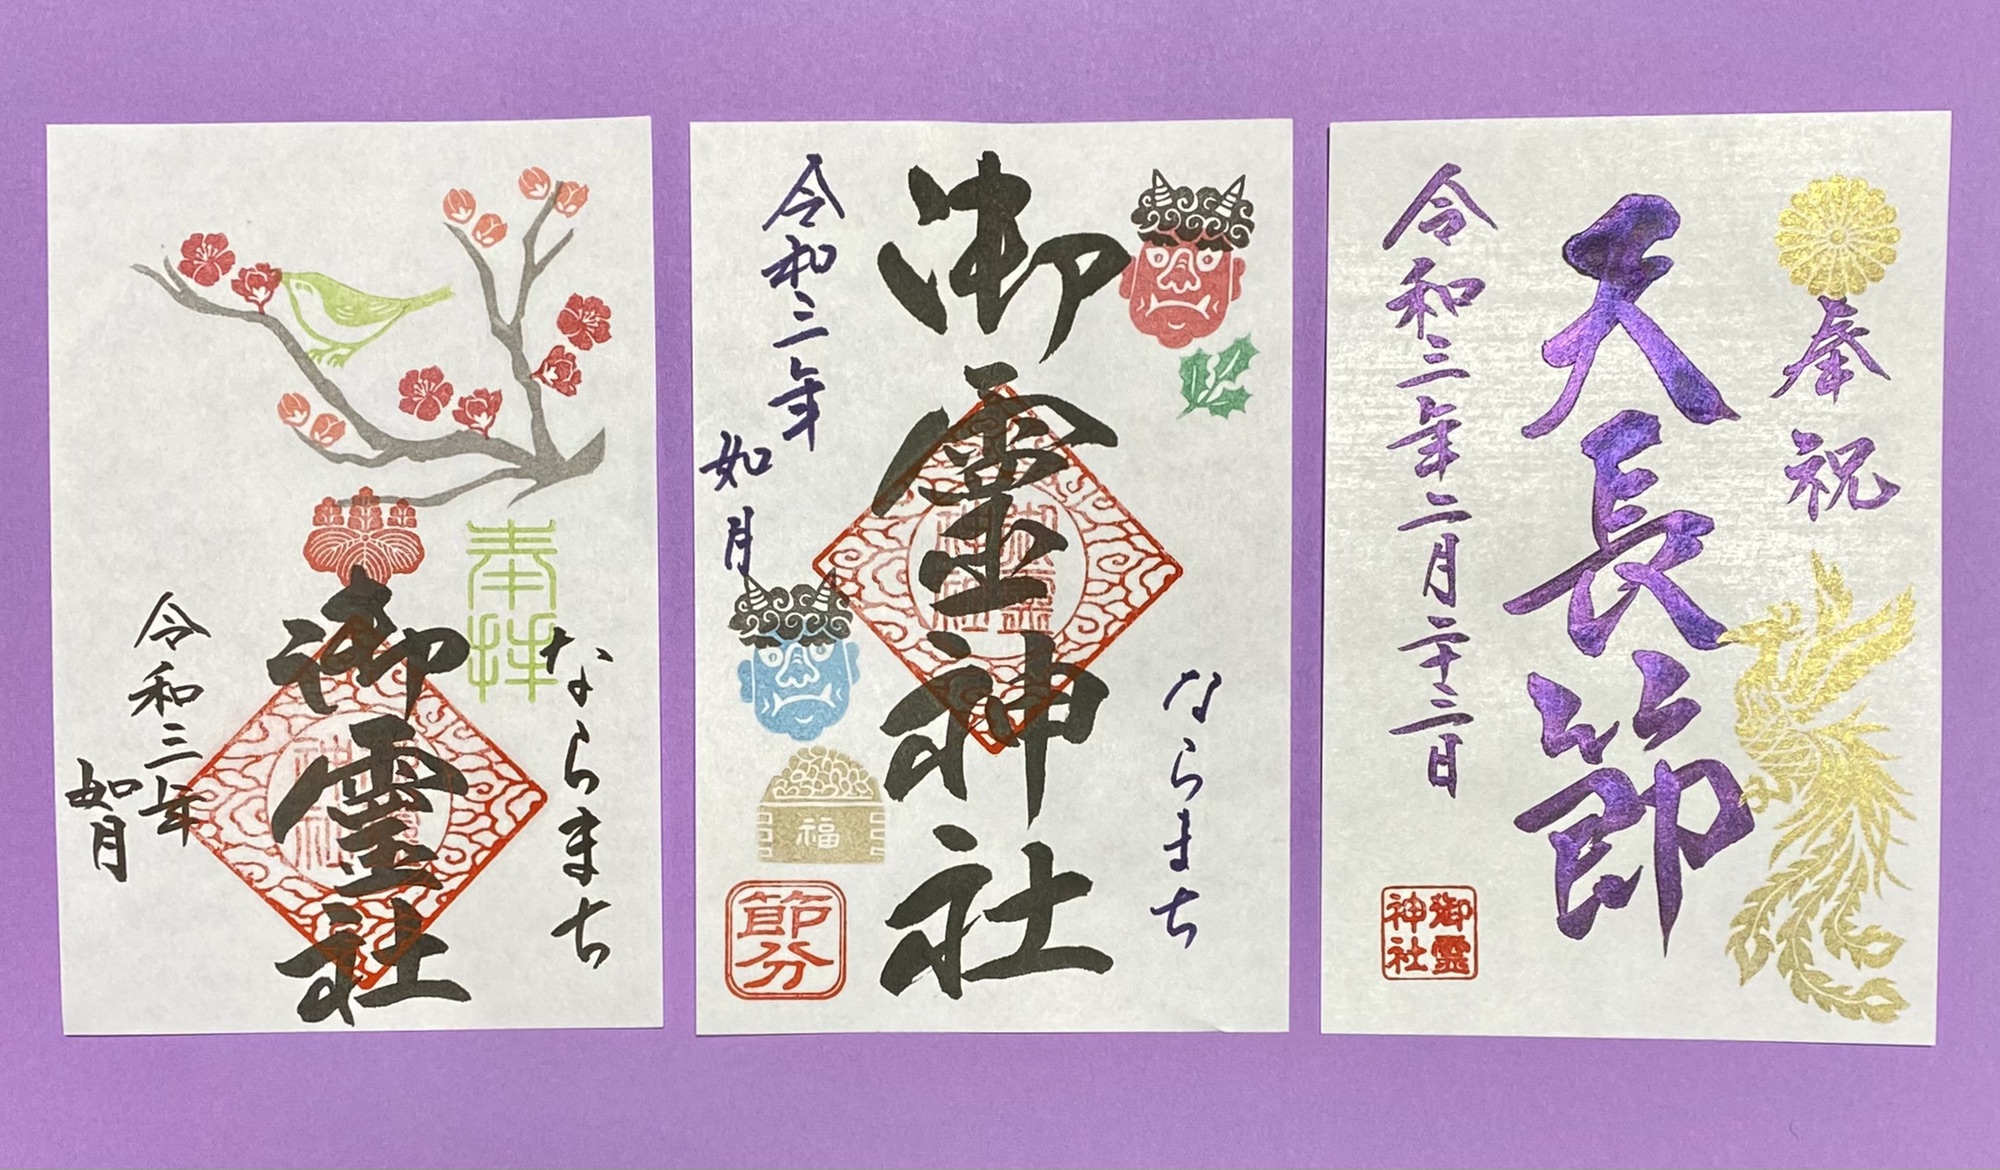 奉拝
ならまち
御霊社
令和三年
如月
御霊神社
ならまち
令和三年
如月
福
節分
御霊神社
奉祝
天長節
令和三年二月二十三日
御霊
神社